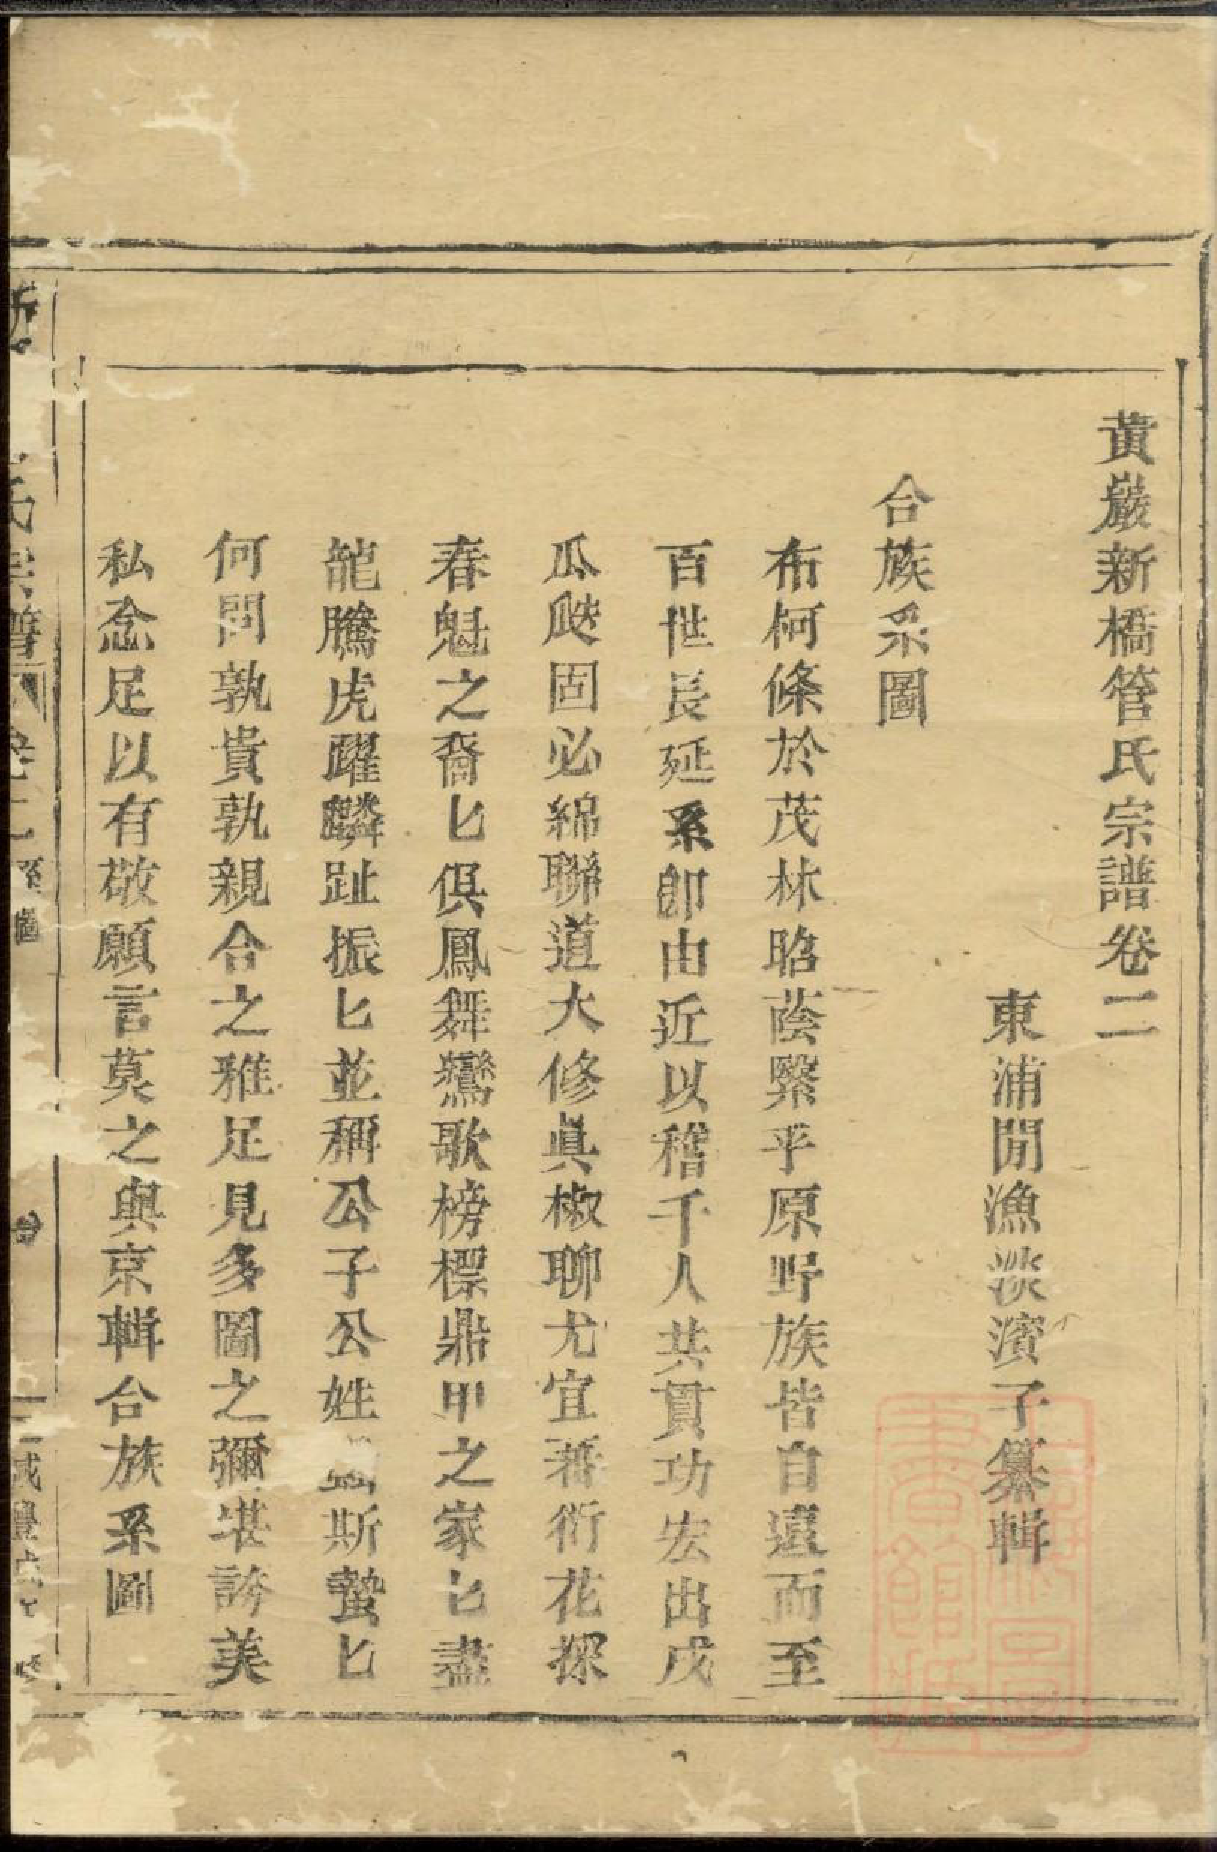 黃巖新橋管氏宗譜卷二
東浦閒漁淡濱子纂輯
合族系圖
布柯條於茂林昭蔭繄乎原野族皆自遠而至
百世長延系卽由近以稽千人共貫功宏出戌
瓜瓞固必綿聯道大修眞椒聊尤宜蕃衍花探
春魁之裔匕俱鳳舞鸞歌榜標鼎甲之家匕盡
龍騰虎躍麟趾振匕並稱公子公姓螽斯蟄匕
何問孰貴孰親合之雅足見多圖之彌堪誇美
私念足以有敬願言莫之與京輯合族系圖
氏宗譜 卷二 系圖
咸豐